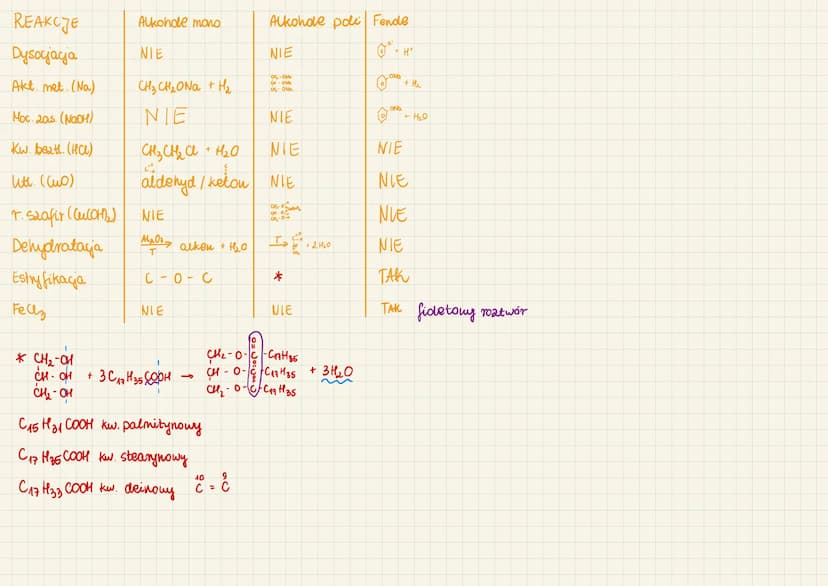 REAKCJE Alkohole mono Alkohole poli Fenole
Dysocjacja NIE NIE O⁻ + H⁺
Akt. met. (Na) CH₃CH₂ONa + H₂ CH₂-ONa CH-ONa CH₂-ONa ONa + H₂
Moc. zas. (NaOH) NIE NIE ONa + H₂O
Kw. beztl. (HCl) CH₃CH₂Cl + H₂O NIE NIE
Utl. (CuO) aldehyd / keton NIE NIE
r. szafir (Cu(OH)₂) NIE NIE
Dehydratacja Al₂O₃ T → alken + H₂O T → + 2H₂O NIE
Estryfikacja C - O - C * TAK
FeCl₃ NIE NIE TAK fioletowy roztwór
* CH₂-OH CH₂-O-C-C₁₇H₃₅
CH-OH + 3C₁₇H₃₅COOH → CH-O-C-C₁₇H₃₅ + 3H₂O
CH₂-OH CH₂-O-C-C₁₇H₃₅
C₁₅H₃₁COOH kw. palmitynowy
C₁₇H₃₅COOH kw. stearynowy
C₁₇H₃₃COOH kw. oleinowy ¹⁰C = ⁹C